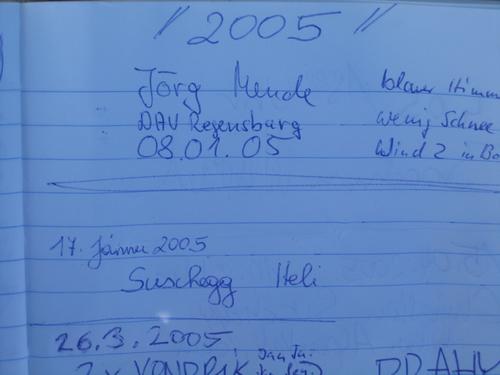 "2005"
Jörg Mende blauer Himm
DAV Regensburg wenig Schnee
08.01.05 Wind 2 in Bo
17. Jänner 2005
Suschegg Heli
26.3.2005
2x VONDRÁK jun.
PRAHA